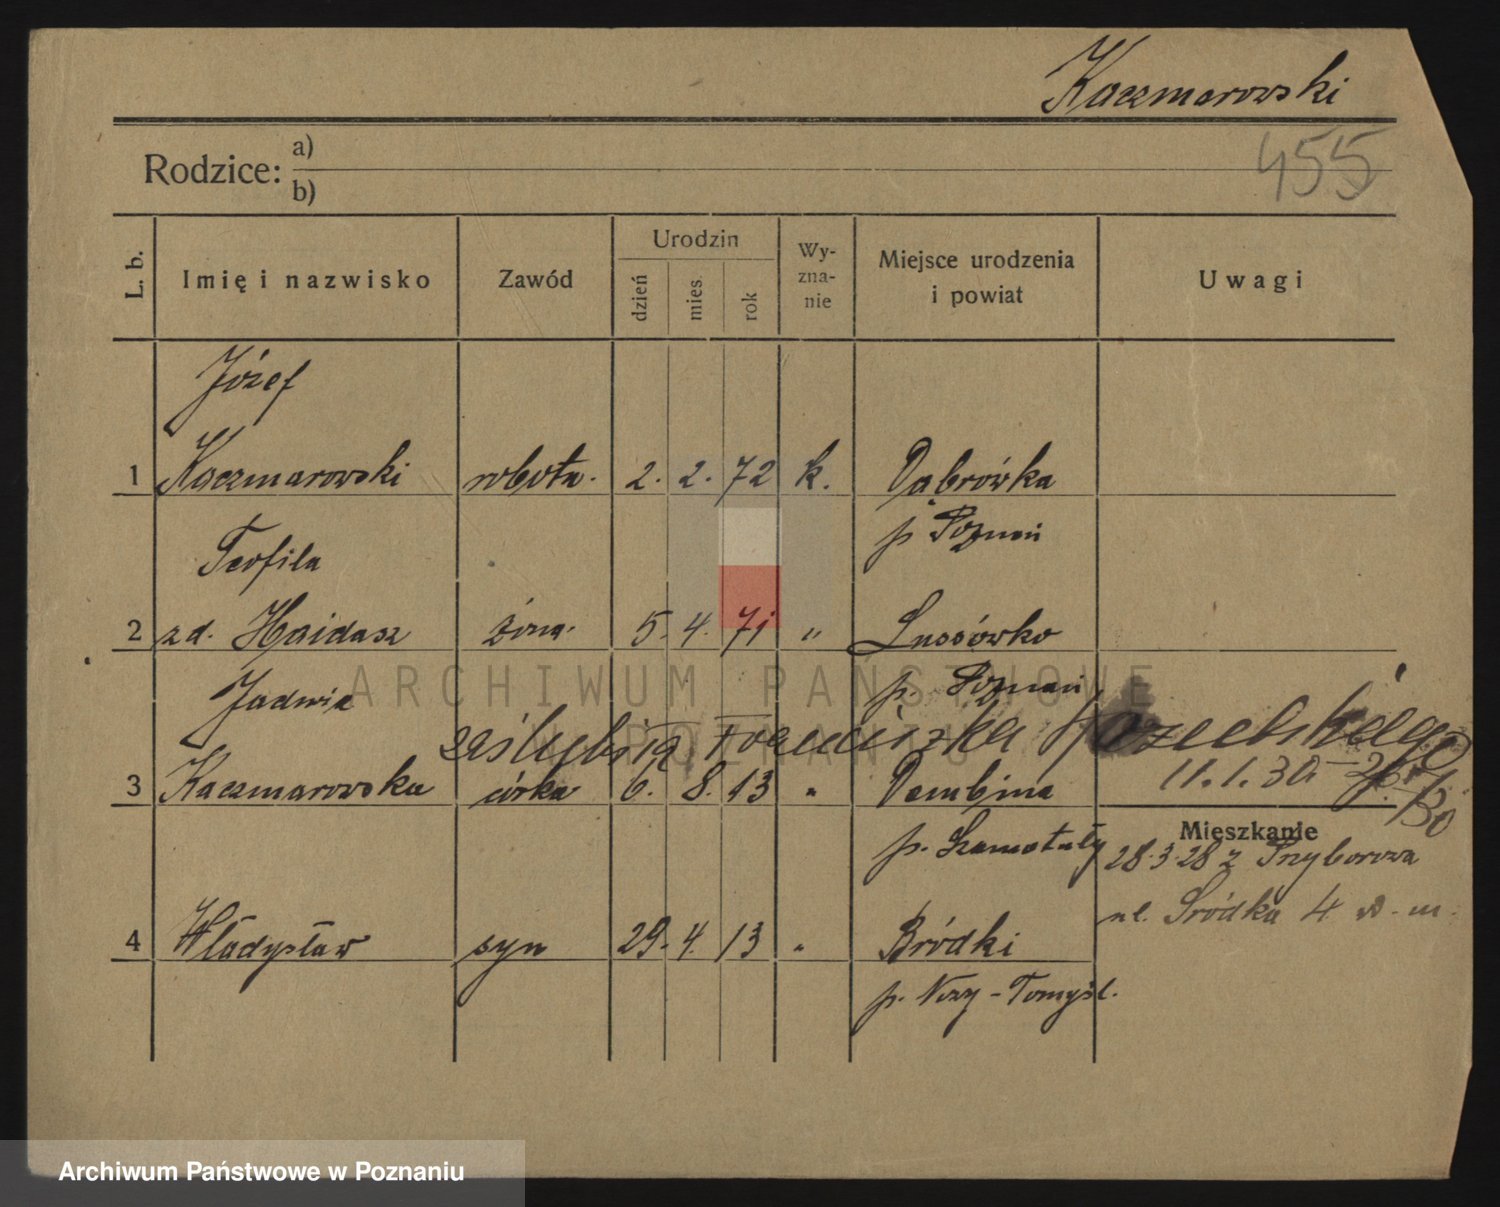 Kaczmarowski
455
Rodzice: a)
b)
L. b.
Imię i nazwisko
Zawód
Urodzin
dzień
mies.
rok
Wy-
zna-
nie
Miejsce urodzenia
i powiat
Uwagi
Józef
1 Kaczmarowski robotn. 2. 2. 72 k. Dąbrówka
p. Poznań
Teofila
2 zd. Haidasz żona. 5. 4. 71 " Lussówko
p. Poznań
Jadwiga
zaślubiła Franciszka
3 Kaczmarowska córka 6. 8. 13 " Dembina
11.1.30
p. Szamotuły
Mieszkanie
28.3.28 z Przyborowa
ul. Śródka 4 w. m.
4 Władysław syn 29. 4. 13 " Bródki
p. Nowy-Tomyśl.
ARCHIWUM PAŃSTWOWE
W POZNANIU
Archiwum Państwowe w Poznaniu